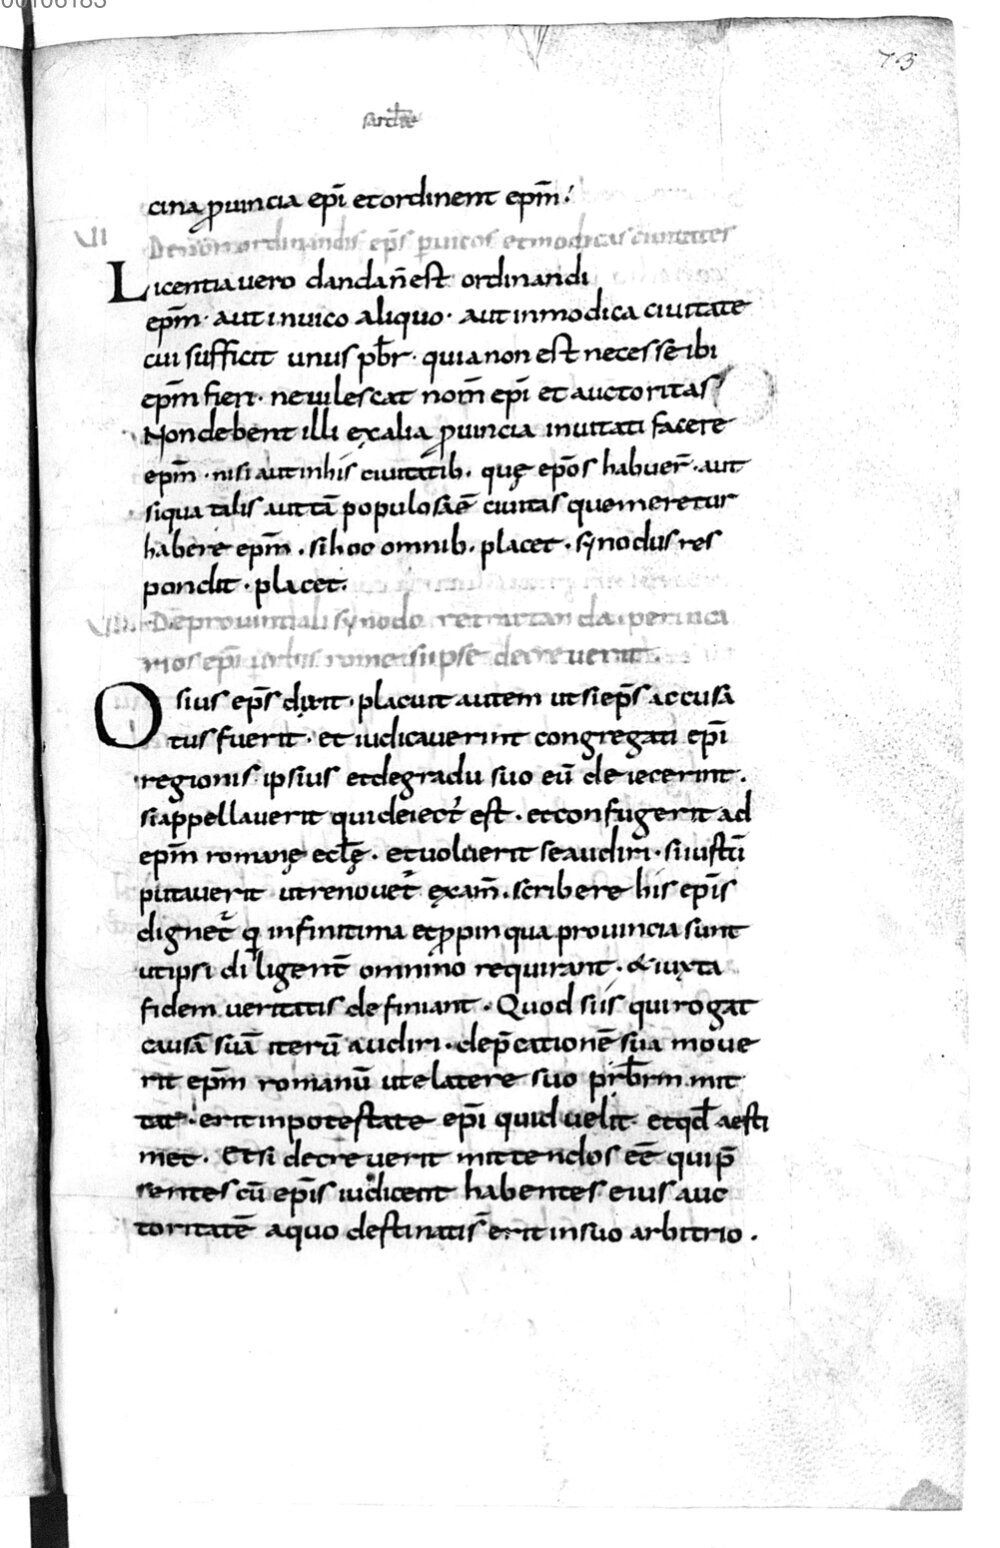 00106183
73
sardic̄
cina ꝓuincia ep̄i et ordinent ep̄m;
VII
De non ordinandis ep̄s p uicos et modicas ciuitates
Licentia uero danda ñ est ordinandi
ep̄m · aut in uico aliquo · aut in modica ciuitate
cui sufficit unus pb̄r · quia non est necesse ibi
ep̄m fieri · ne uilescat nom̄ ep̄i et auctoritas
Non debent illi ex alia ꝓuincia inuitati facere
ep̄m · nisi aut in his ciuitatib · quę ep̄os habuer̄ · aut
si qua talis aut tā populosa ē ciuitas que meretur
habere ep̄m · si hoc omnib · placet · synodus res
pondit · placet ·
VIII
De prouintiali synodo retractanda per uica
rios ep̄i urbis rome si ipse decreuerit ·
Osius ep̄s dixit · placuit autem ut si ep̄s accusa
tus fuerit · et iudicauerint congregati ep̄i
regionis ipsius et de gradu suo eū deiecerint ·
si appellauerit qui deiect̄ est · et confugerit ad
ep̄m romanę eclę̄ · et uoluerit se audiri · si iustū
putauerit ut renouet̄ exam̄ · scribere his ep̄is
dignet̄ q in finitima et ꝓpinqua prouincia sunt
ut ipsi diligent̄ omnino requirant · & iuxta
fidem ueritatis definiant · Quod si is qui rogat
causā suā iterū audiri · dep̄catione sua moue
rit ep̄m romanū ut e latere suo prb̄rm mit
tat · erit in potestate ep̄i quid uelit et qd̄ aesti
met · Et si decreuerit mittendos eē qui p̄
sentes cū ep̄is iudicent habentes eius auc
toritatē a quo destinati s̄ erit in suo arbitrio ·